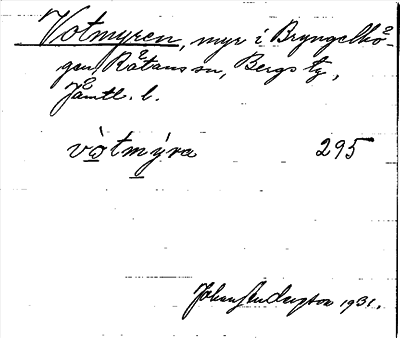 Votmyren, myr i Bryngelhö-
gen, Råtans sn, Bergs tg,
Jämtl. l.
vòtmýra 295
Johan Andersson 1931.